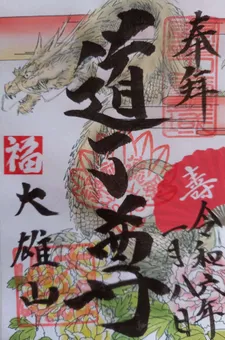 奉拝
令和六年
一月八日
寿
道了尊
福
大雄山